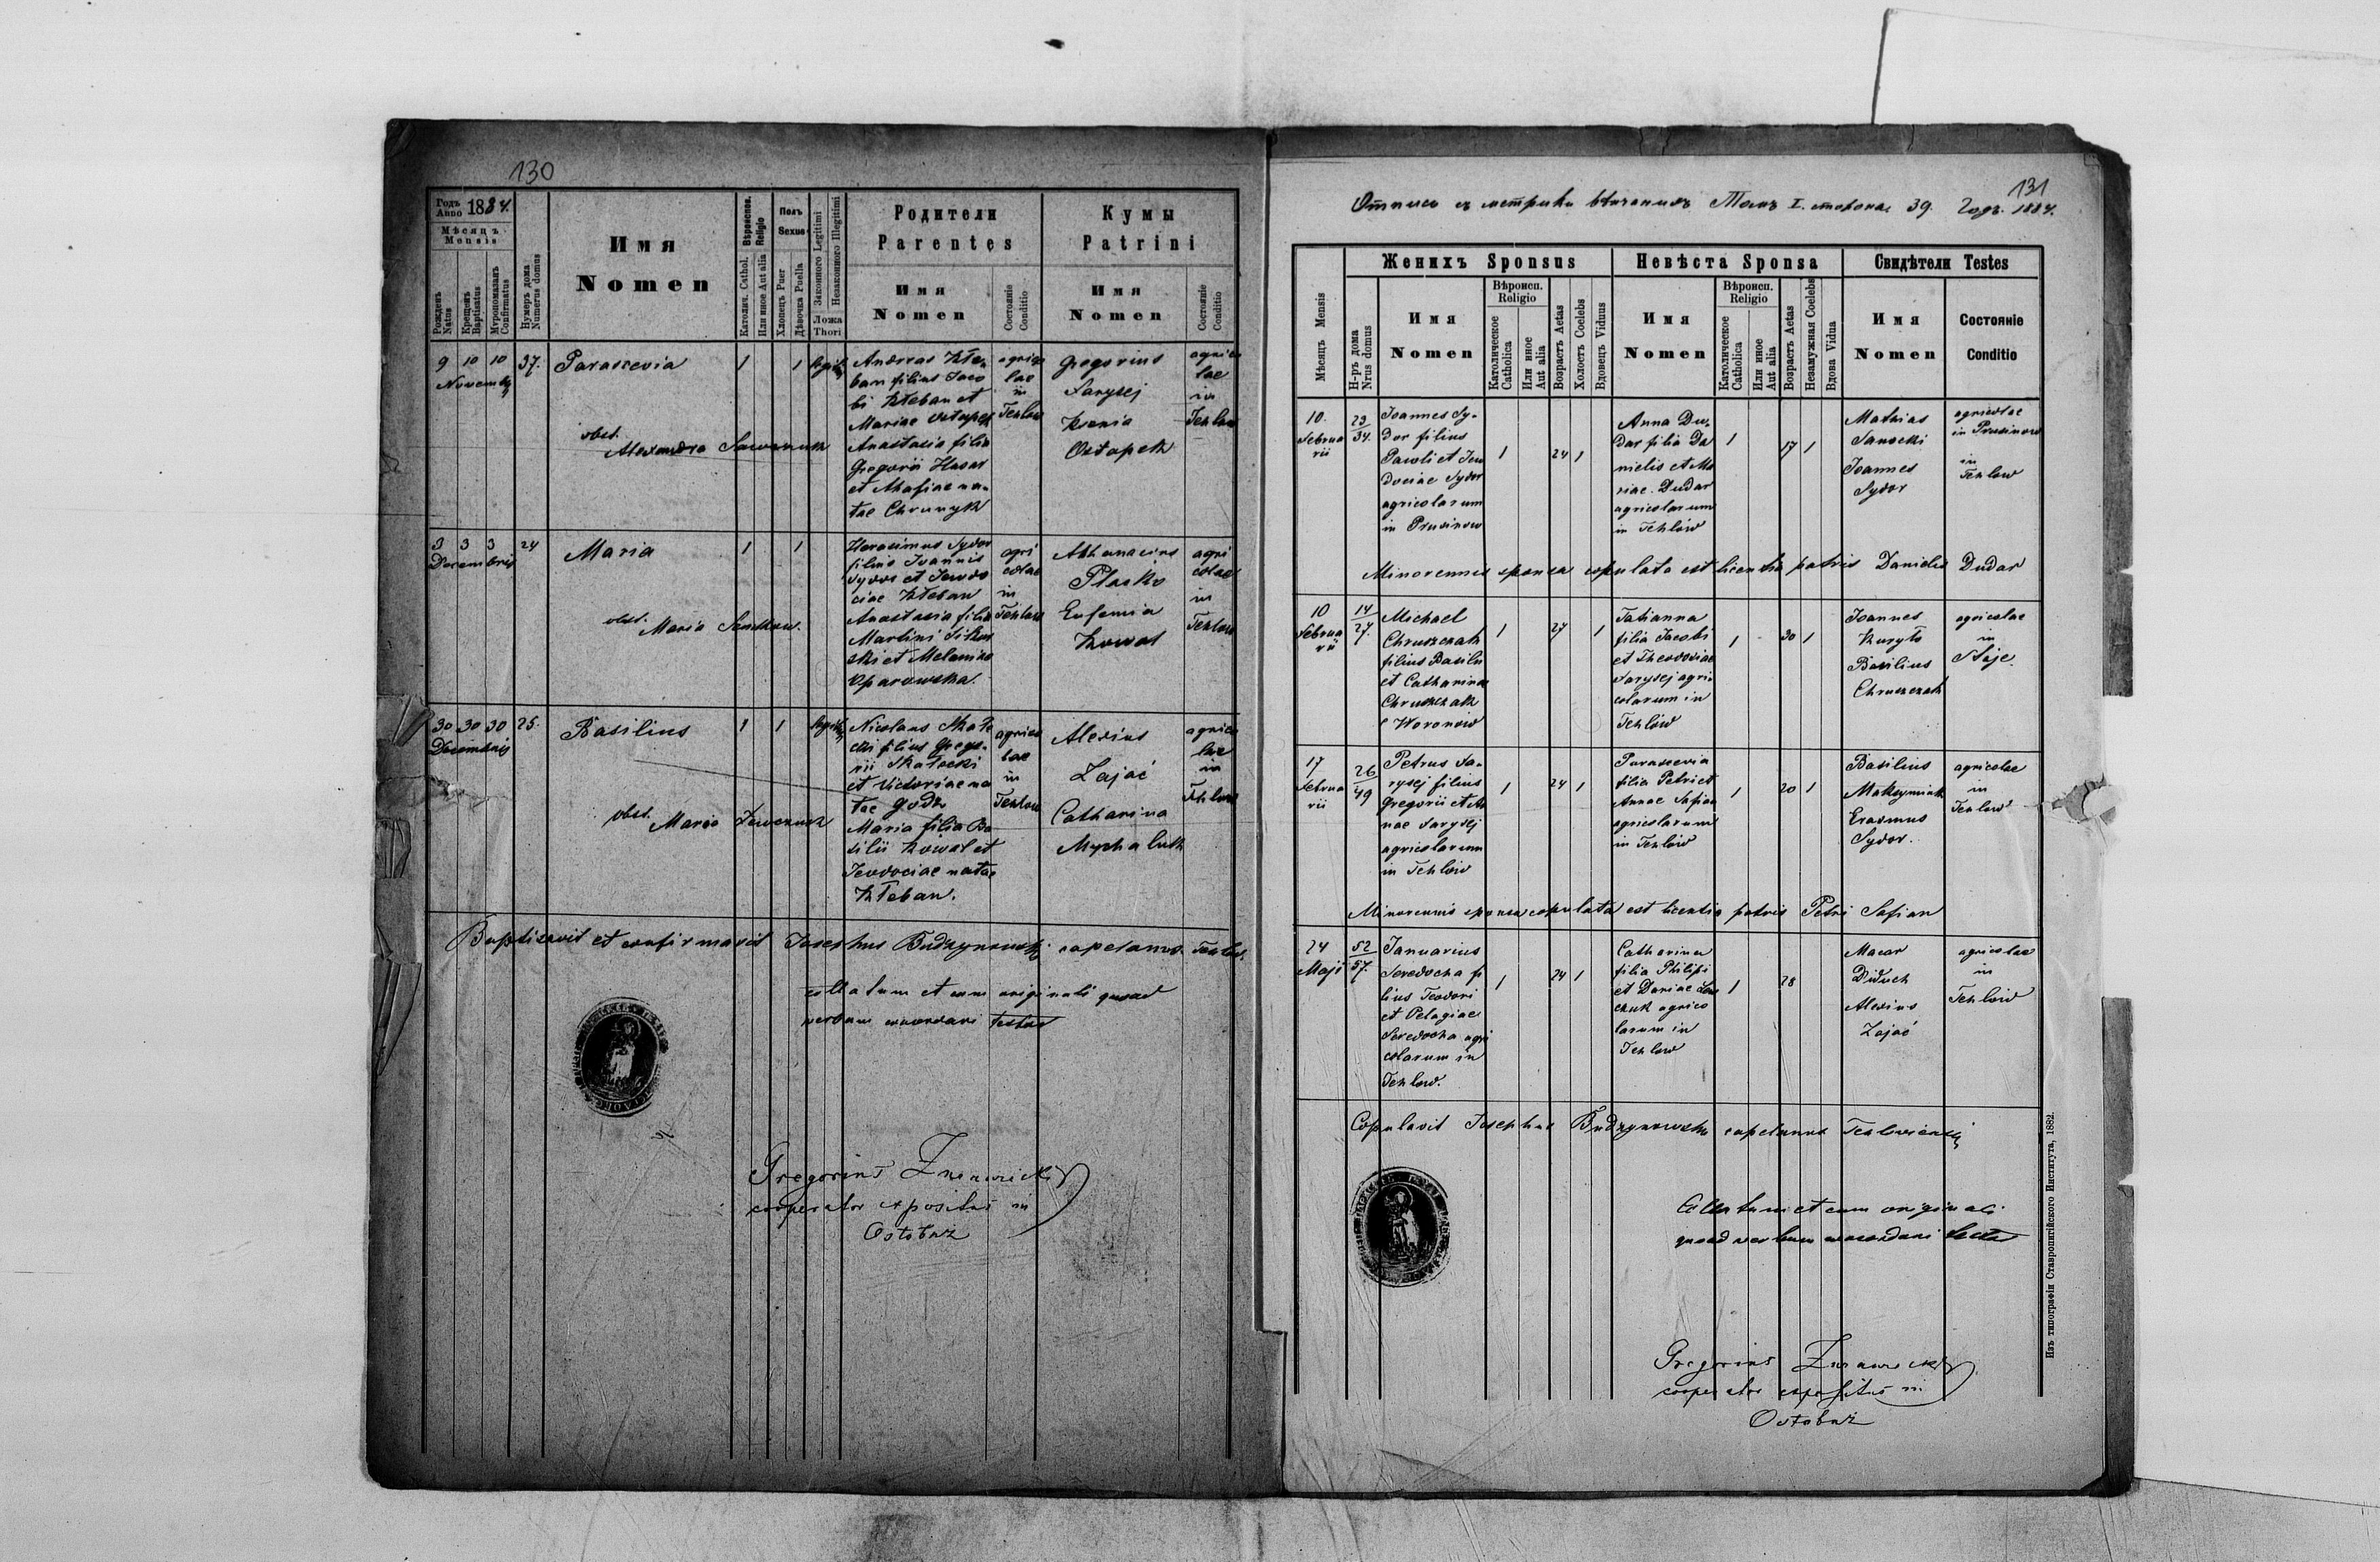 130
Годъ Anno 1884.
Мѣсяцъ Mensis
Рожденъ Natus
Крещенъ Baptisatus
Мѵропомазанъ Confirmatus
Нумеръ дома Numerus domus
Имя Nomen
Вѣроиспов. Religio
Католич. Cathol.
Или иное Aut alia
Полъ Sexus
Хлопецъ Puer
Дѣвочка Puella
Законного Legitimi
Незаконного Illegitimi
Ложа Thori
Родители Parentes
Имя Nomen
Состояніе Conditio
Кумы Patrini
Имя Nomen
Состояніе Conditio
9 10 10 37.
Novembr
Parascevia
1 1
obst. Alexandra Sawczuk
Andreas Kłe-
ban filius Jaco
bi Kłeban et
Mariae Ostapek
Anastasia filia
Gregorii Husar
et Ahafiae na-
tae Chrunyk
agrico
lae
in
Tehlow
Gregorius
Sarysej
Ksenia
Ostapek
agrico
lae
in
Tehlow
3 3 3 24
Decembris
Maria
1 1
obst. Maria
Harasimus Sydor
filius Joannis
Sydor et Jewdo
ciae Kłeban
Anastasia filia
Martini
ski et Melaniae
Oparowska.
agri
colae
in
Tehlow
Athanasius
Ptasko
Eufemia
Kowal
agri
colae
in
Tehlow
30 30 30 25.
Decembris
Basilius
1 1
obst. Maria
Nicolaus Skałe
cki filius Grego-
rii Skałecki
et Victoriae na
tae Godz
Maria filia Ba
silii Kowal et
Jewdociae natae
Kłeban.
agrico
lae
in
Tehlow
Alexius
Zając
Catharina
Mychaluk
agrico
lae
in
Tehlow
Baptisavit et confirmavit Josephus Budzynowski capelanus Tehlov.
collatum et cum originali quoad
verbum concordari testor
Gregorius
cooperator expositus in
Ostobuż
131
Отпись съ метрики вѣнчаныхъ Томъ I. сторона 39. Годъ 1884.
Мѣсяцъ Mensis
Н-ръ дома Nrus domus
Женихъ Sponsus
Имя Nomen
Вѣроисп. Religio
Католическое Catholica
Или иное Aut alia
Возрастъ Aetas
Холостъ Coelebs
Вдовецъ Viduus
Невѣста Sponsa
Имя Nomen
Вѣроисп. Religio
Католическое Catholica
Или иное Aut alia
Возрастъ Aetas
Незамужная Coelebs
Вдова Vidua
Свидѣтели Testes
Имя Nomen
Состояніе Conditio
10.
Februa
rii
23
34.
Joannes Sy-
dor filius
Pawli et Jew
dociae Sydor
agricolarum
in Prusinow
1 24 1
Anna Du-
dar filia Da
nielis et Ma
riae Dudar
agricolarum
in Tehlow
1 17 1
Mathias
Sanocki
Joannes
Sydor
agricolae
in Prusinow
in
Tehlow
Minorennis sponsa copulata est licentia patris Danielis Dudar
10
Februa
rii
14
27.
Michael
Chruszczak
filius Basilii
et Catharinae
Chruszczak
Woronow
1 27 1
Tatianna
filia Jacobi
et Theodosiae
Sarysej agri-
colarum in
Tehlow
1 30 1
Joannes
Kuryło
Basilius
Chruszczak
agricolae
in
Staje
17
Februa
rii
26
49
Petrus Sa-
rysej filius
Gregorii et An
nae Sarysej
agricolarum
in Tehlow
1 24 1
Parascevia
filia Petri et
Annae Safian
agricolarum
in Tehlow
1 20 1
Basilius
Maksymiuk
Erasmus
Sydor.
agricolae
in
Tehlow
Minorennis sponsa copulata est licentia patris Petri Safian
24
Maji
52
57.
Januarius
Seredocha fi
lius Teodori
et Pelagiae
Seredocha agri
colarum in
Tehlow.
1 24 1
Catharina
filia Philipi
et Dariae Lew
czuk agrico
larum in
Tehlow
1 28
Macar
Diduch
Alexius
Zając
agricolae
in
Tehlow
Copulavit Josephus Budzynowski capelanus Tehloviensis
Collatum et cum originali
quoad verbum concordari testor
Gregorius
cooperator expositus in
Ostobuż
Изъ типографіи Ставропигійского Института, 1882.